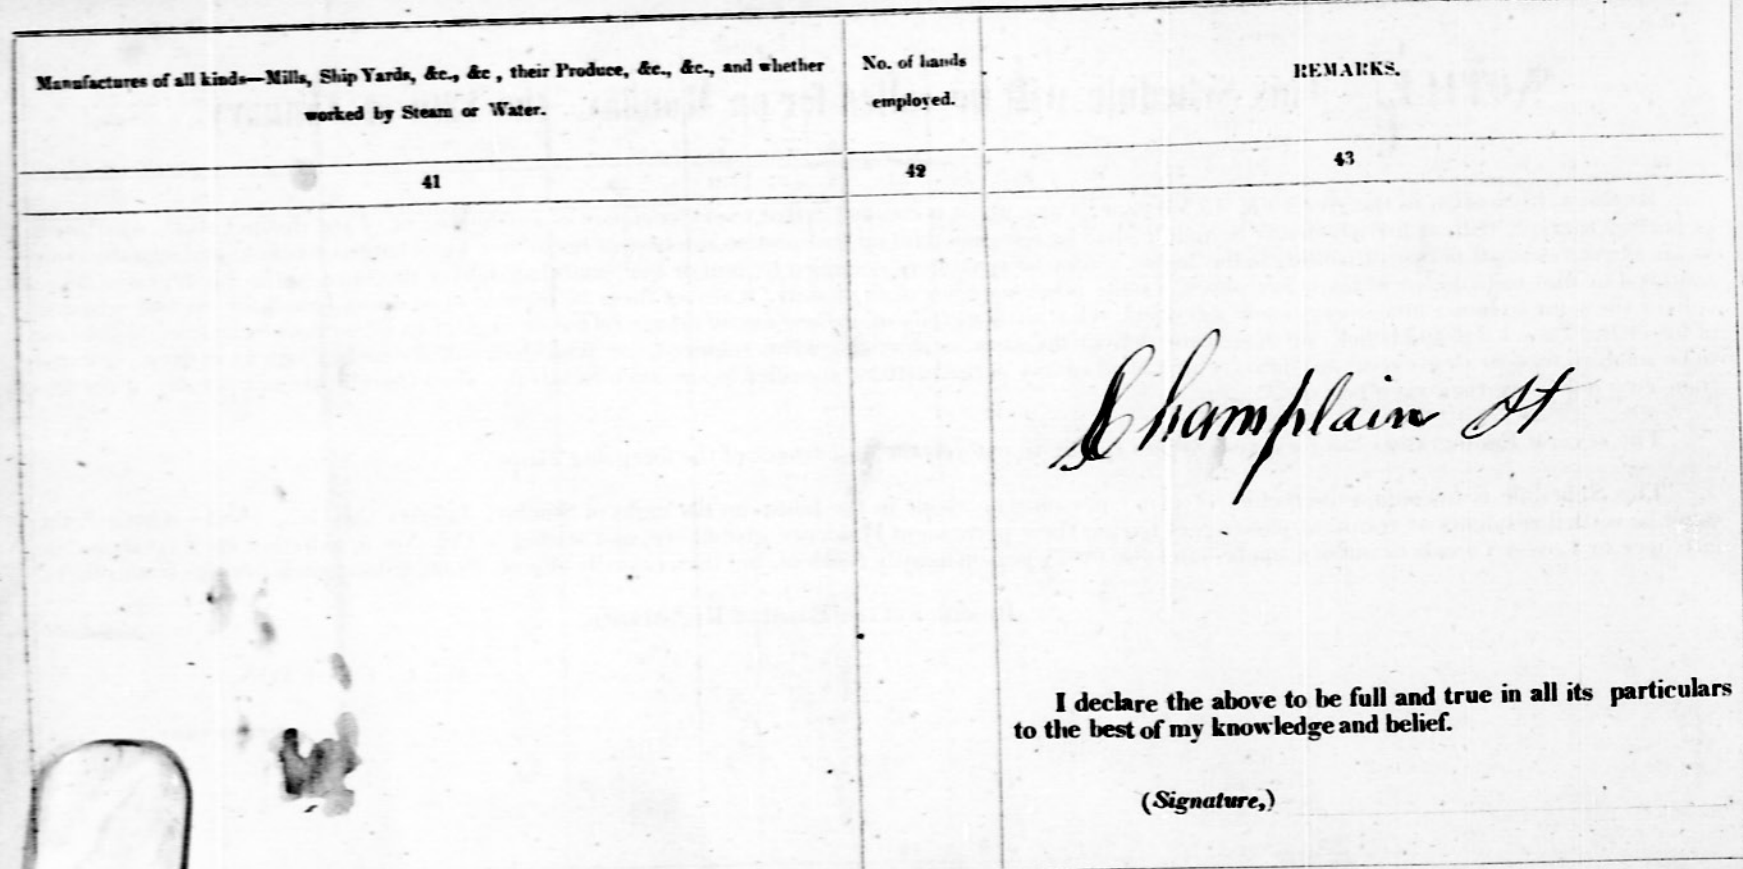 Manufactures of all kinds—Mills, Ship Yards, &c., &c , their Produce, &c., &c., and whether
worked by Steam or Water.
No. of hands
employed.
REMARKS.
41
42
43
Champlain St
I declare the above to be full and true in all its particulars
to the best of my knowledge and belief.
(Signature,)